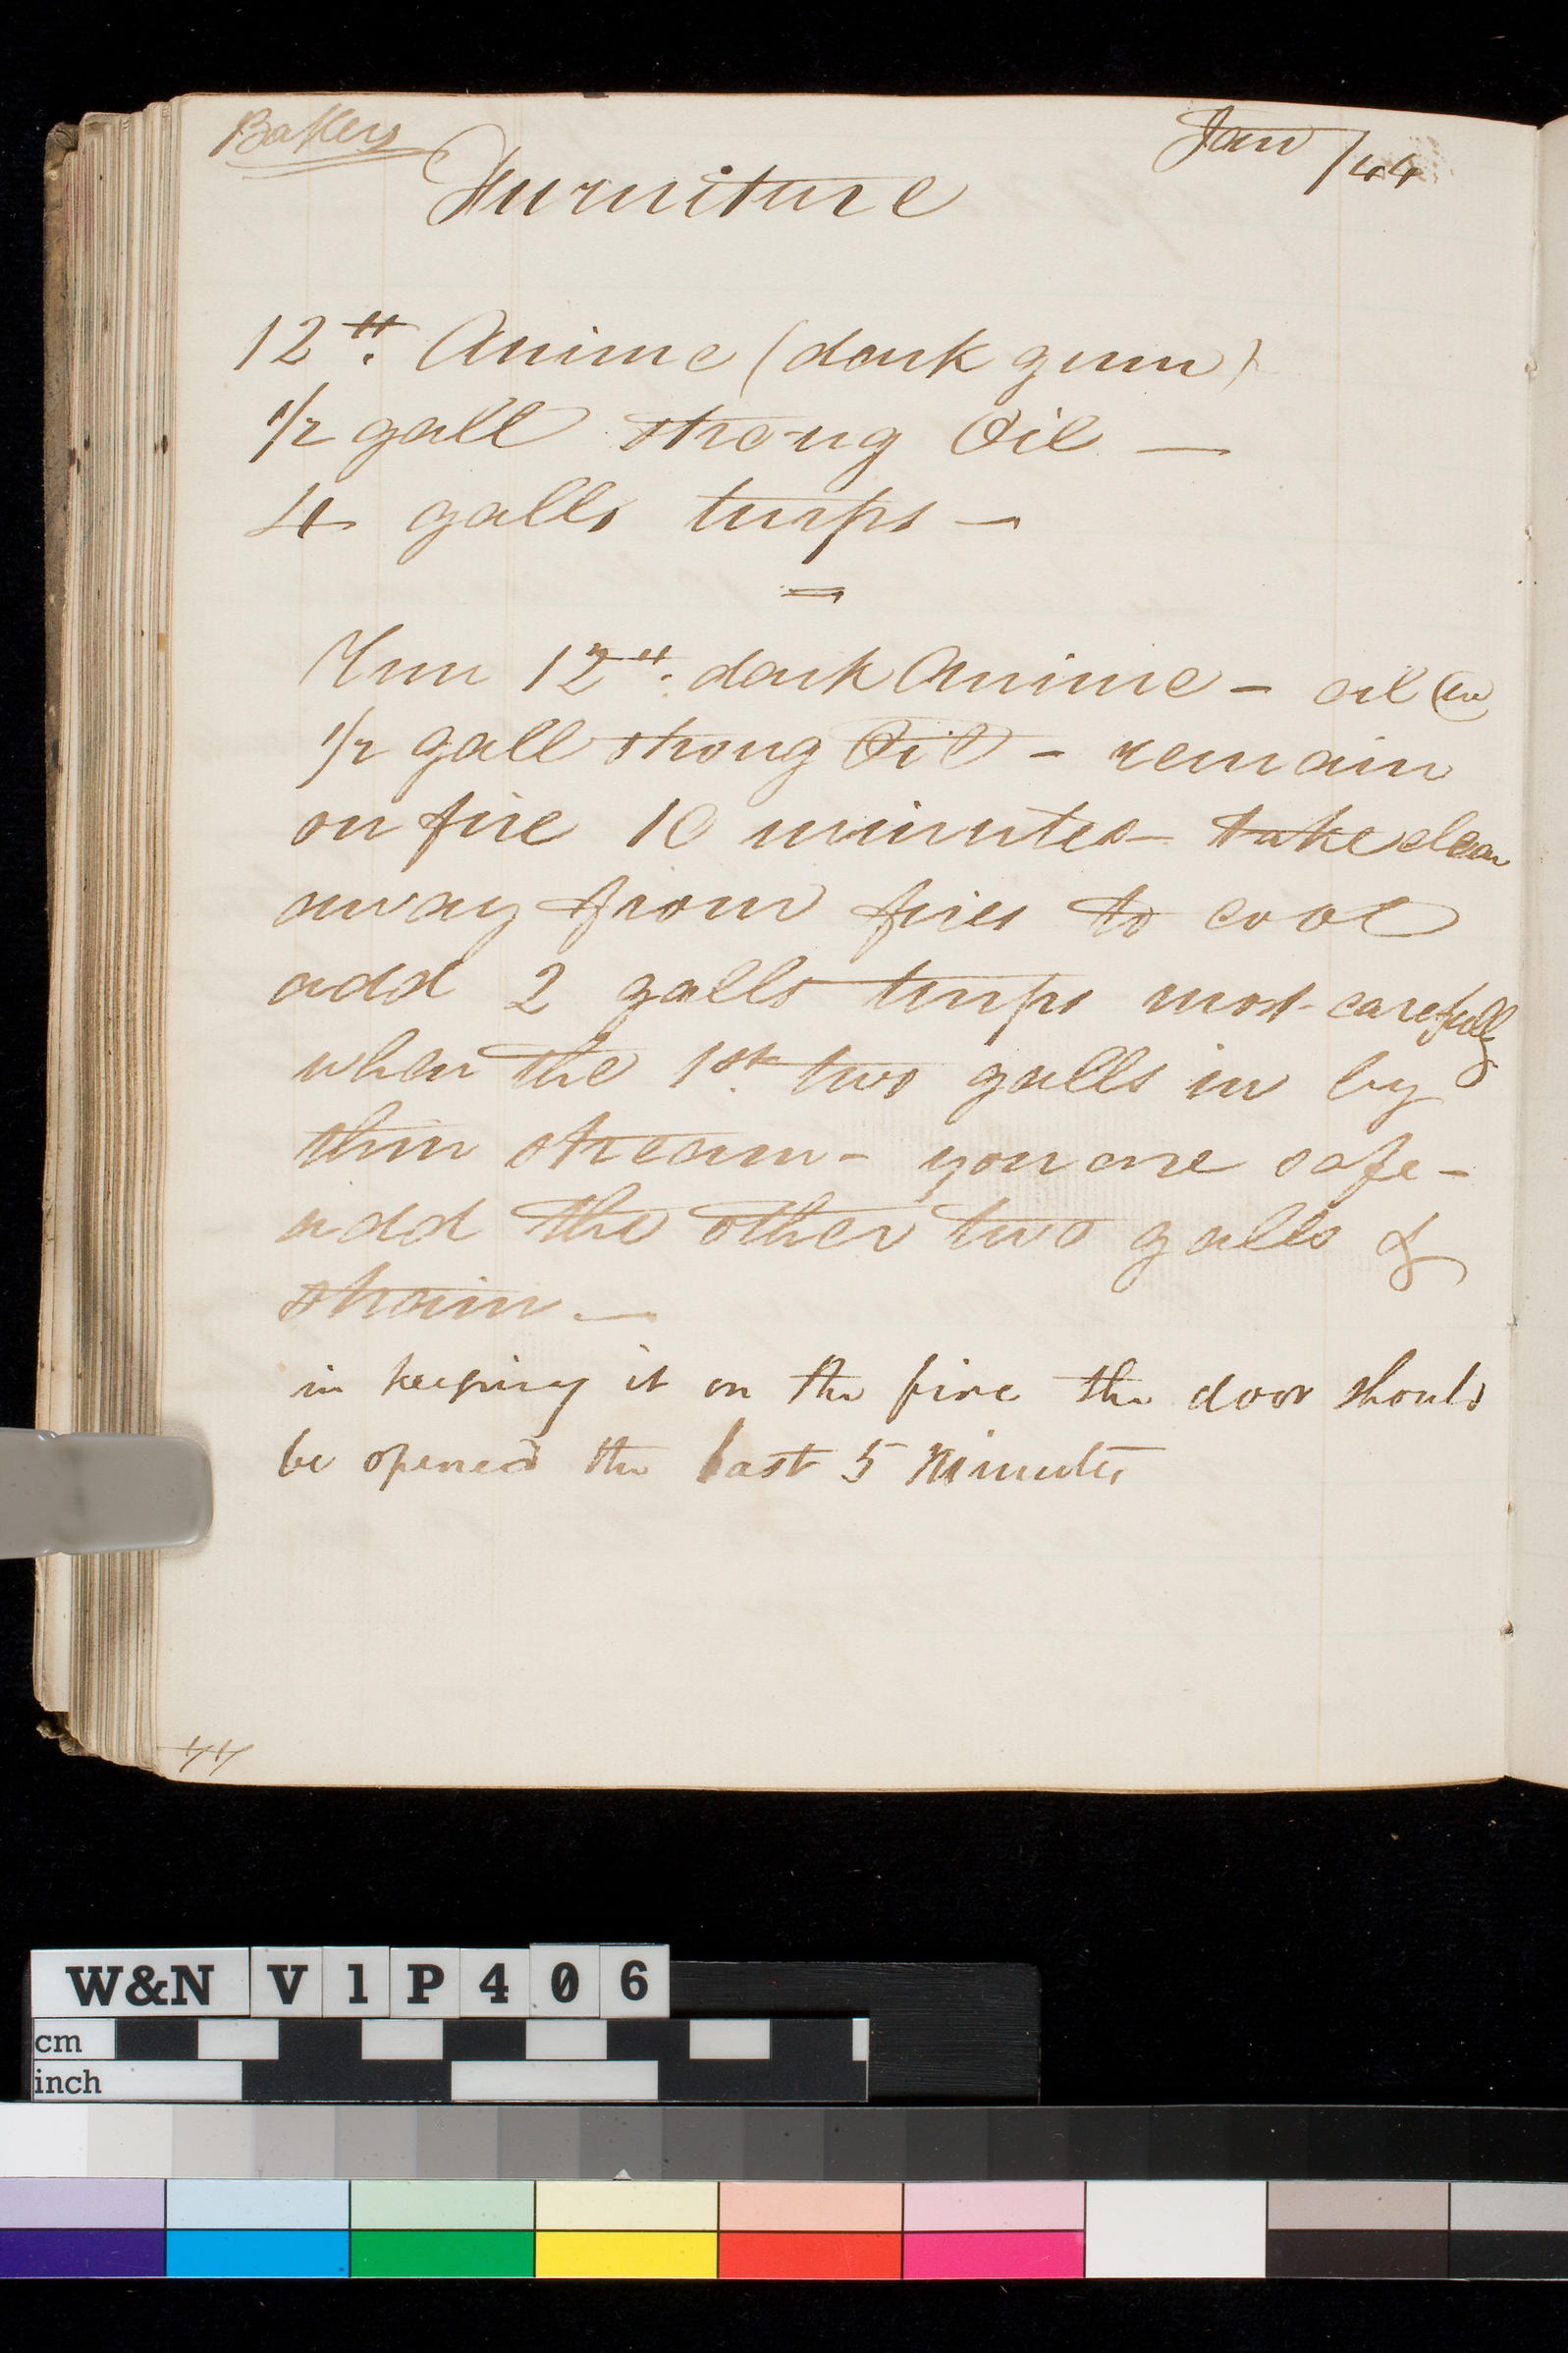 Bakers
Jan /44
Furniture
12 lb. Anime (dark gum)
1/2 gall strong Oil —
4 galls turps —
=
Run 12 lb. dark Anime – oil in
1/2 gall strong Oil – remain
on fire 10 minutes – take clean
away from fires to cool
add 2 galls turps most carefully
when the 1st two galls in by
thin stream – you are safe –
add the other two galls &
strain —
in keeping it on the fire the door should
be opened the last 5 Minutes
W&N V1P406
cm
inch